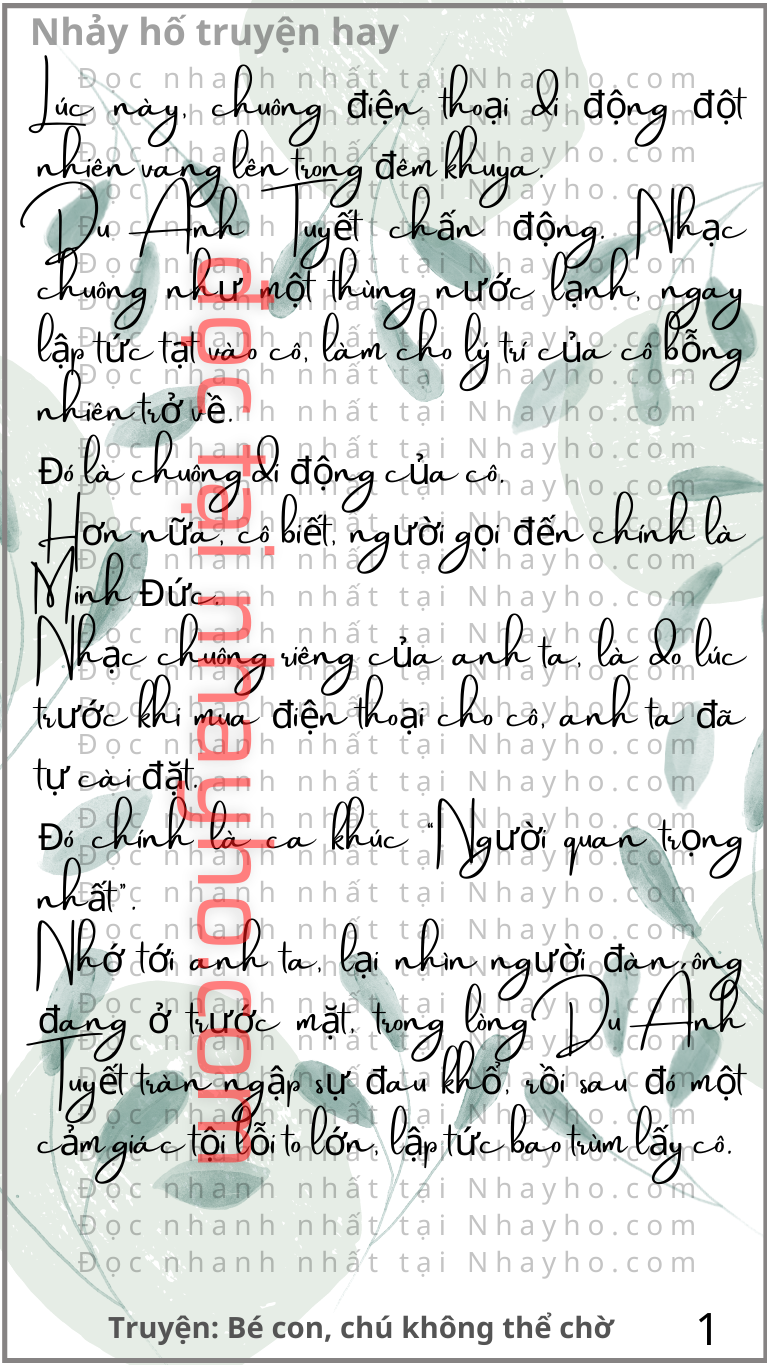 Nhảy hố truyện hay
Lúc này, chuông điện thoại di động đột
nhiên vang lên trong đêm khuya.
Du Anh Tuyết chấn động. Nhạc
chuông như một thùng nước lạnh, ngay
lập tức tạt vào cô, làm cho lý trí của cô bỗng
nhiên trở về.
Đó là chuông di động của cô.
Hơn nữa, cô biết, người gọi đến chính là
Minh Đức.
Nhạc chuông riêng của anh ta, là do lúc
trước khi mua điện thoại cho cô, anh ta đã
tự cài đặt.
Đó chính là ca khúc “Người quan trọng
nhất”.
Nhớ tới anh ta, lại nhìn người đàn ông
đang ở trước mặt, trong lòng Du Anh
Tuyết tràn ngập sự đau khổ, rồi sau đó một
cảm giác tội lỗi to lớn, lập tức bao trùm lấy cô.
đọc tại nhayho.com
Đọc nhanh nhất tại Nhayho.com
Đọc nhanh nhất tại Nhayho.com
Đọc nhanh nhất tại Nhayho.com
Truyện: Bé con, chú không thể chờ
1